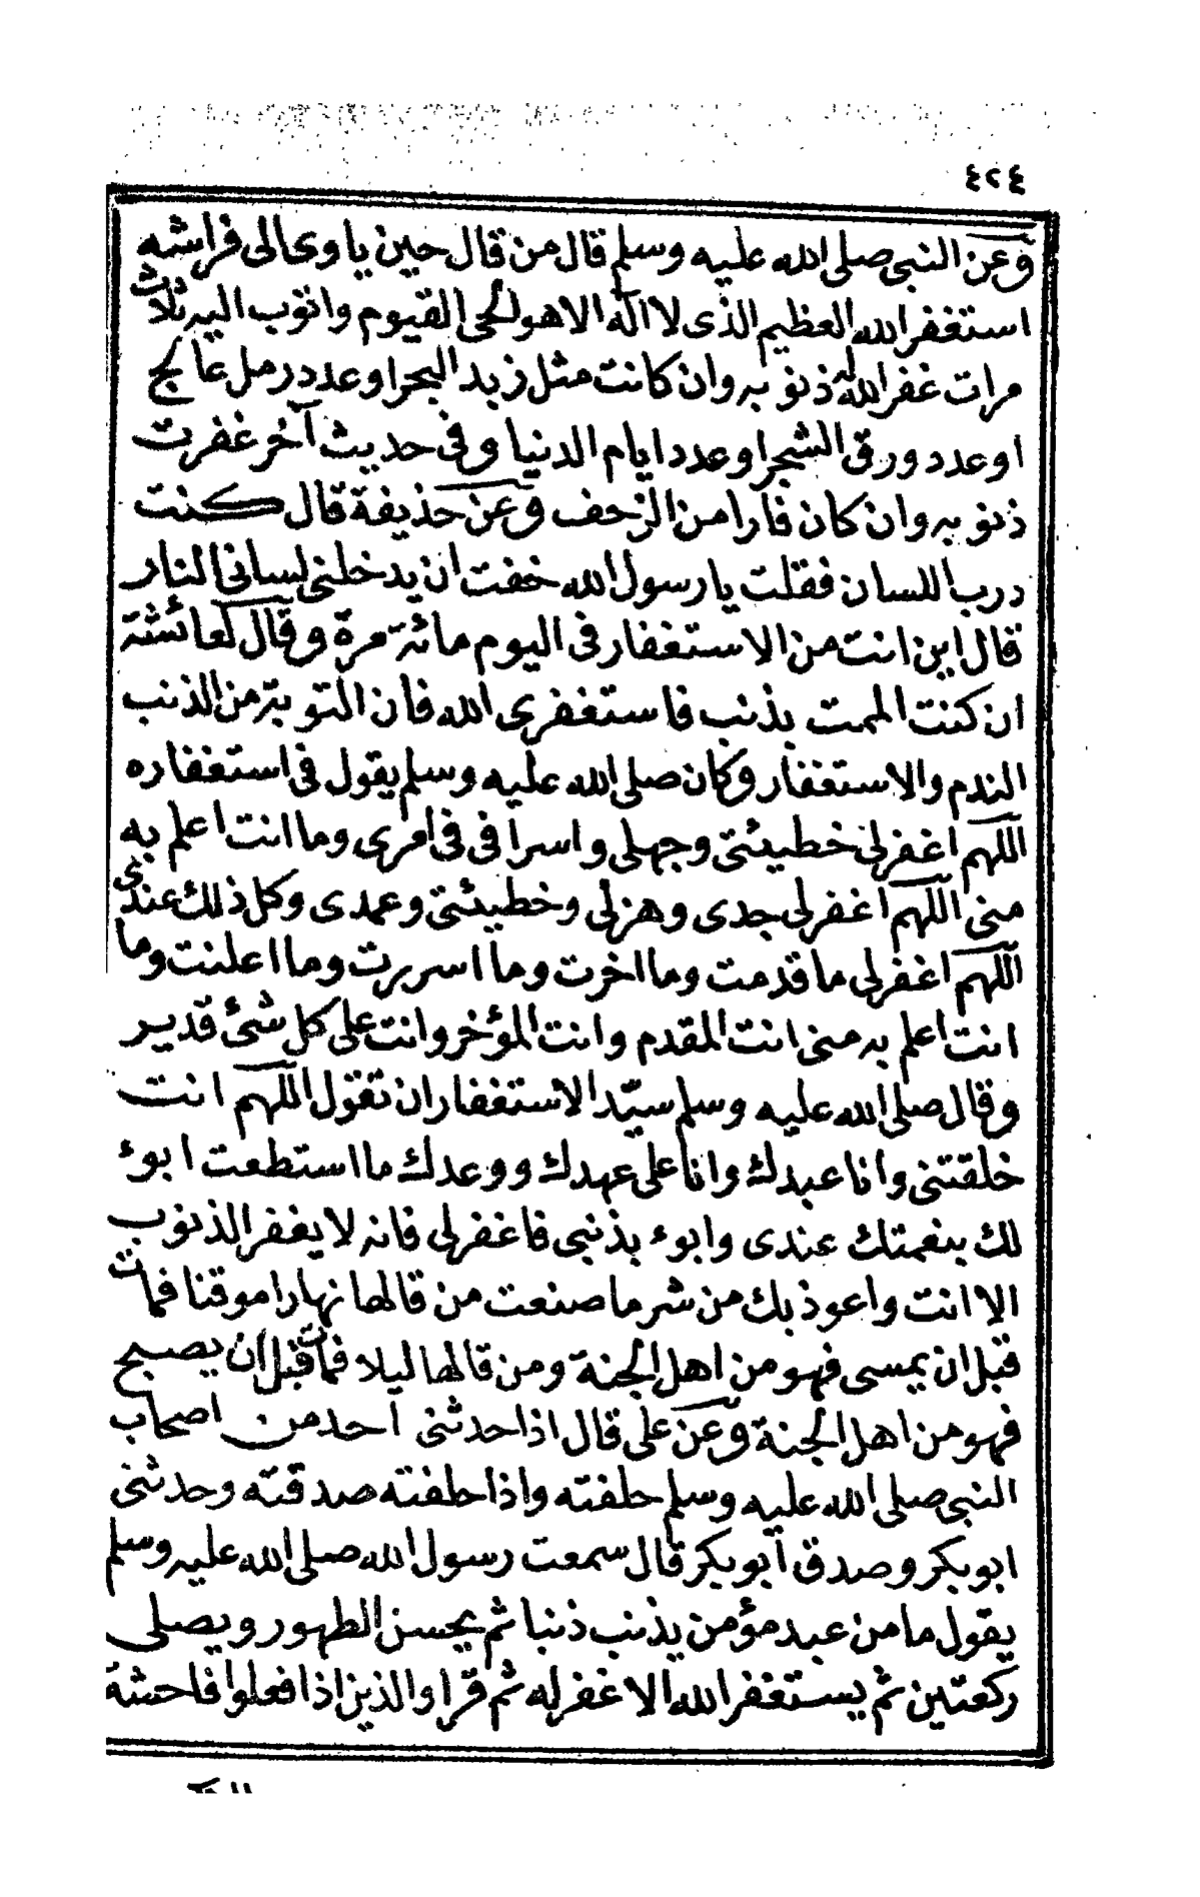 ٤٢٤
وعن النبي صلى الله عليه وسلم قال من قال حين ياوى الى فراشه
استغفر الله العظيم الذى لا اله الا هو الحى القيوم واتوب اليه ثلاث
مرات غفر الله له ذنوبه وان كانت مثل زبد البحر او عدد رمل عالج
او عدد ورق الشجر او عدد ايام الدنيا وفى حديث آخر غفرت
ذنوبه وان كان فارا من الزحف وعن حذيفة قال كنت
درب اللسان فقلت يا رسول الله خفت ان يدخلنى لسانى النار
قال اين انت من الاستغفار فى اليوم مائة مرة وقال لعائشة
ان كنت الممت بذنب فاستغفرى الله فان التوبة من الذنب
الندم والاستغفار وكان صلى الله عليه وسلم يقول فى استغفاره
اللهم اغفر لى خطيئتى وجهلى واسرافى فى امرى وما انت اعلم به
منى اللهم اغفر لى جدى وهزلى وخطيئتى وعمدى وكل ذلك عندى
اللهم اغفر لى ما قدمت وما اخرت وما اسررت وما اعلنت وما
انت اعلم به منى انت المقدم وانت المؤخر وانت على كل شئ قدير
وقال صلى الله عليه وسلم سيّد الاستغفار ان تقول اللهم انت
خلقتنى وانا عبدك وانا على عهدك ووعدك ما استطعت ابوء
لك بنعمتك عندى وابوء بذنبى فاغفر لى فانه لا يغفر الذنوب
الا انت واعوذ بك من شر ما صنعت من قالها نهارا موقنا فمات
قبل ان يمسى فهو من اهل الجنة ومن قالها ليلا فمات قبل ان يصبح
فهو من اهل الجنة وعن على قال اذا حدثنى احد من اصحاب
النبى صلى الله عليه وسلم حلفته واذا حلفته صدقته وحدثنى
ابو بكر وصدق ابو بكر قال سمعت رسول الله صلى الله عليه وسلم
يقول ما من عبد مؤمن يذنب ذنبا ثم يحسن الطهور ويصلى
ركعتين ثم يستغفر الله الا غفر له ثم قرا والذين اذا فعلوا فاحشة